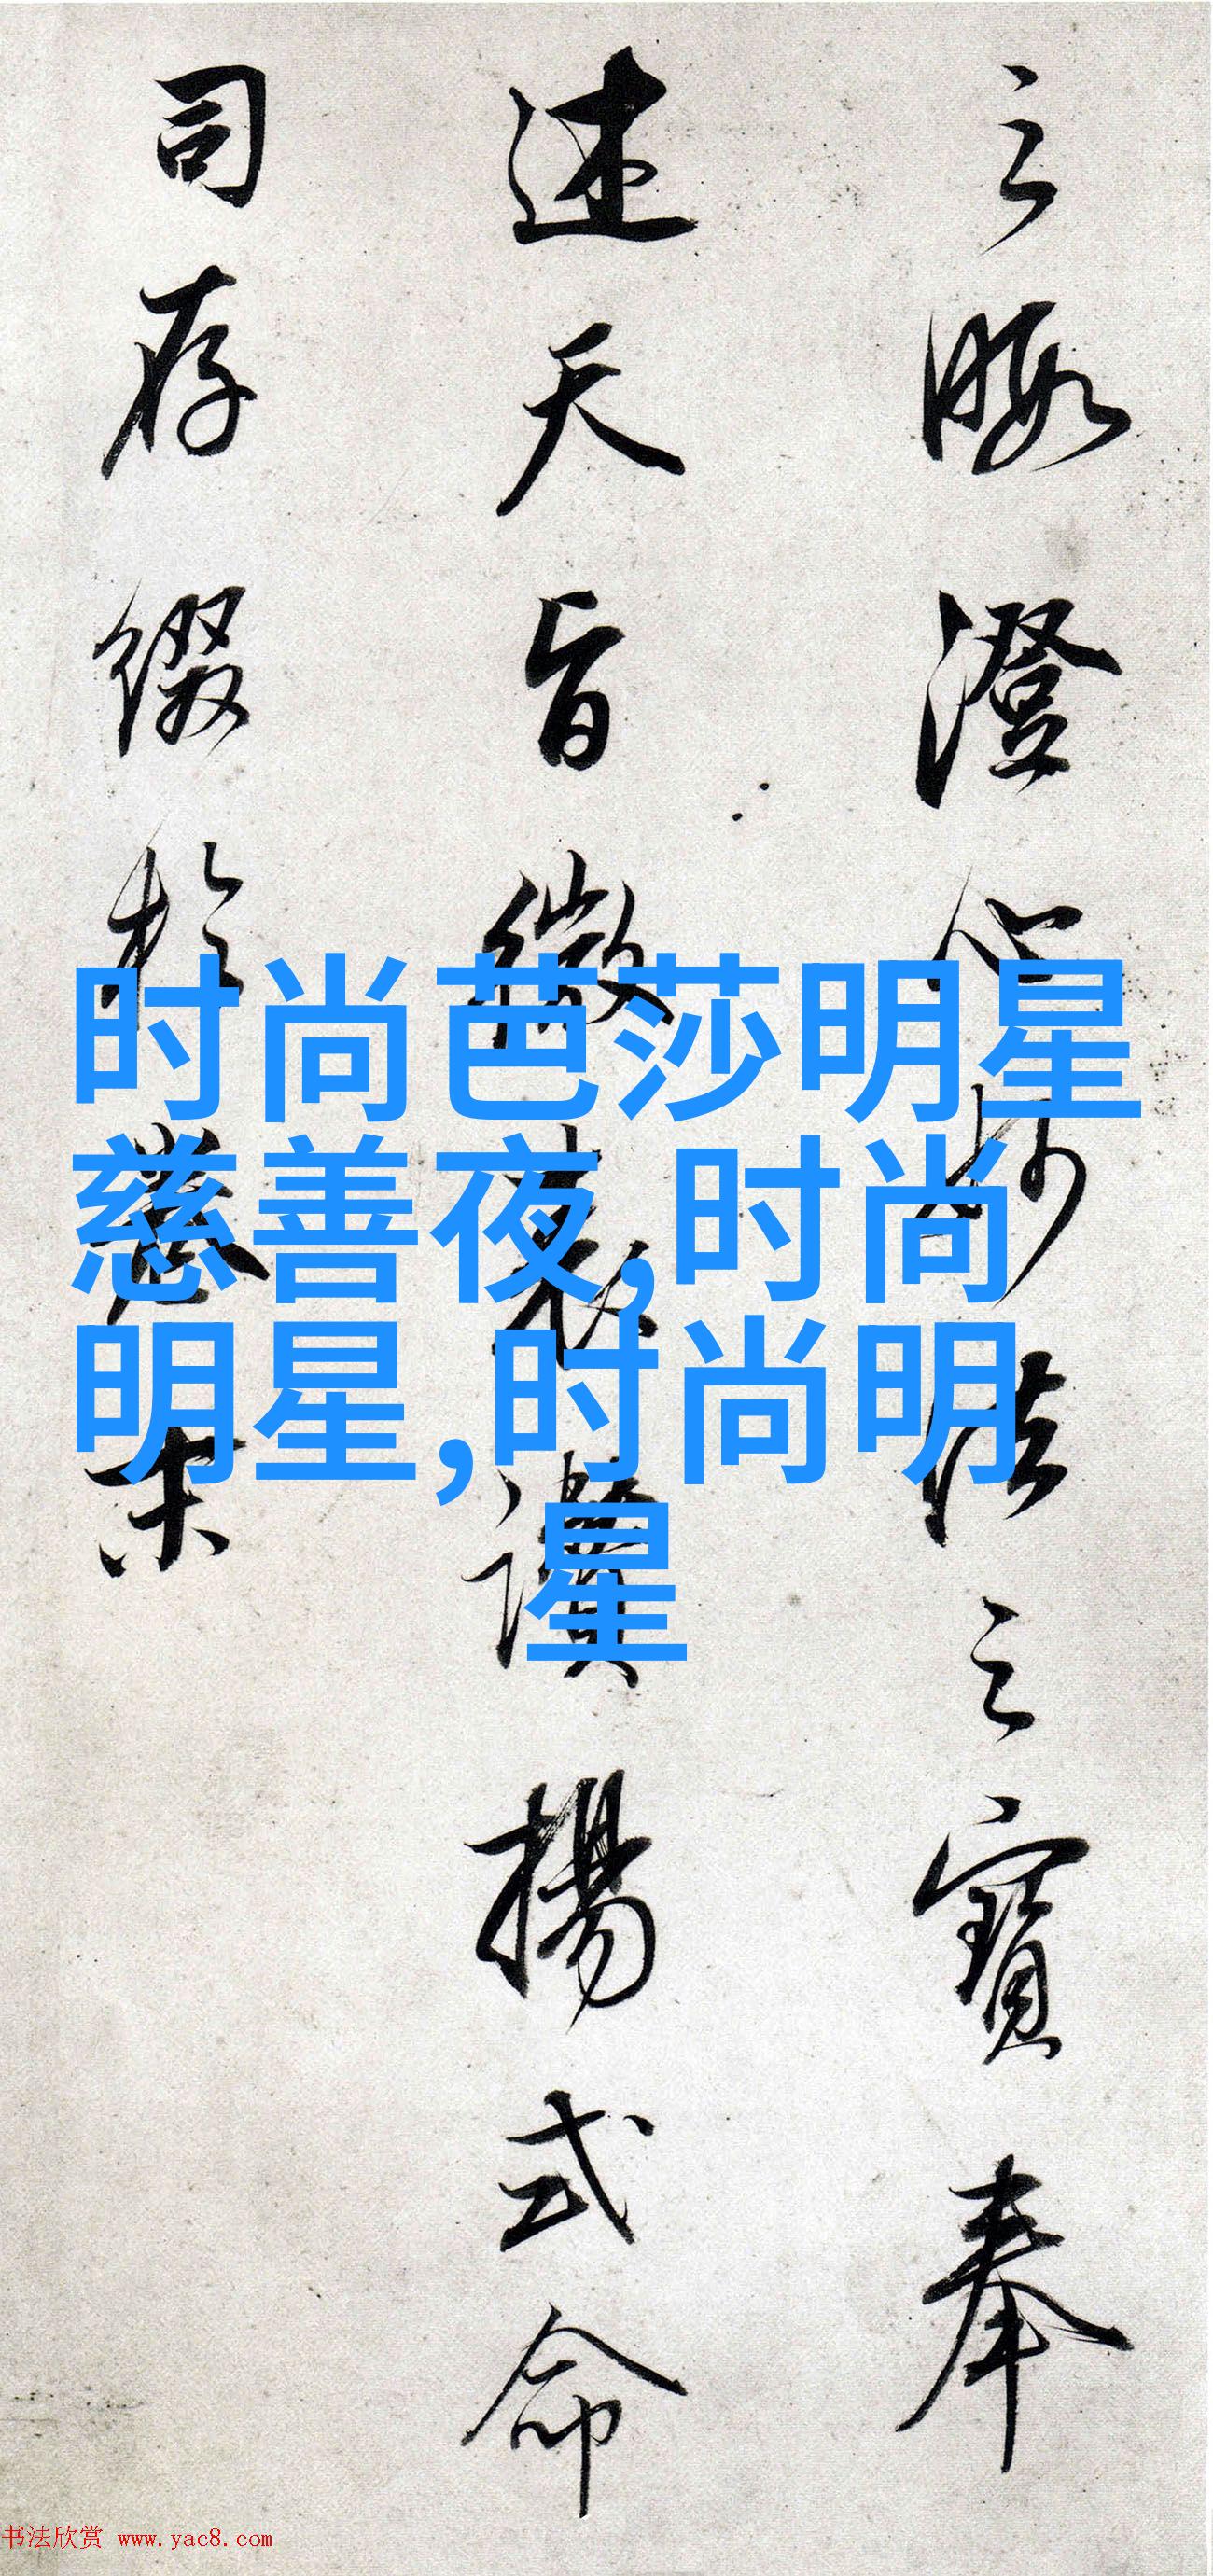 之暇澄心妙法之寶奉
述天旨微表讚揚式命
司存綴於卷末
时尚芭莎明星
慈善夜,时尚
明星,时尚明
星
书法欣赏 www.yac8.com